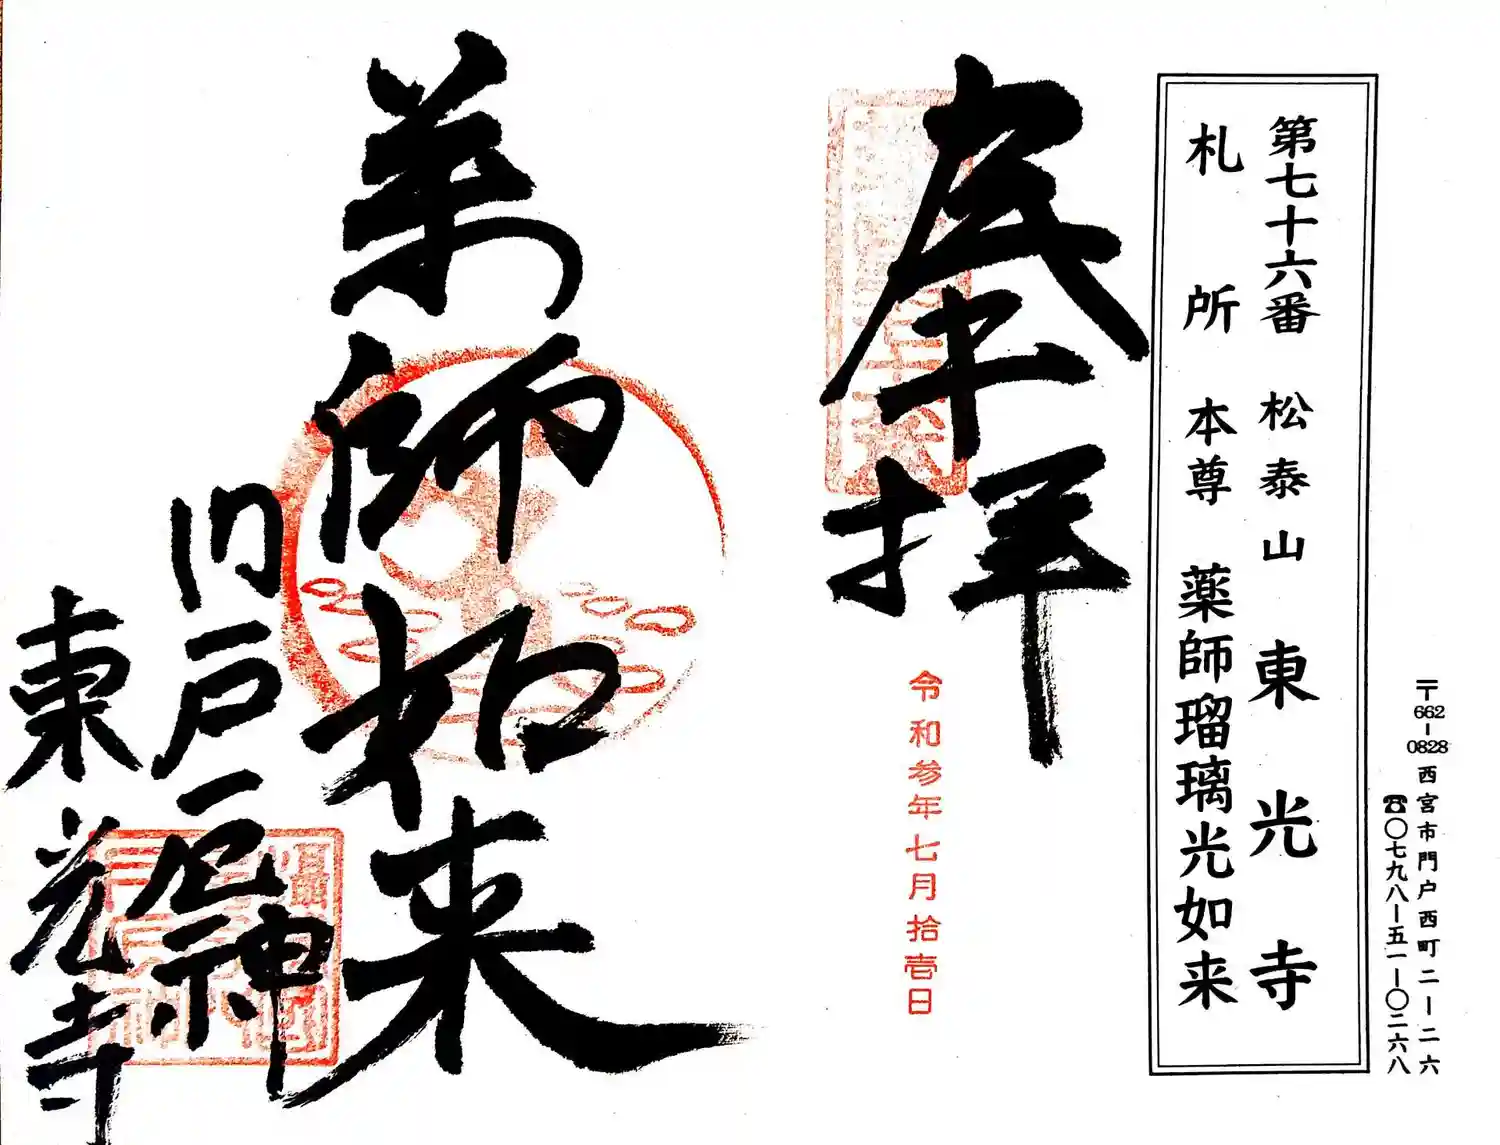 〒662-0828 西宮市門戸西町二ー二六
☎〇七九八ー五一ー〇二六八
第七十六番 松泰山 東光寺
札所 本尊 薬師瑠璃光如来
奉拝
令和参年七月拾壱日
薬師如来
門戸厄神
東光寺